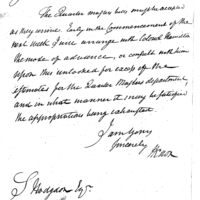 The Quarter master has only be occupied
as they arrive. Early in the Commencement of the
next Week I will arrange with Colonel Hamilton
the mode of advance, or consult with him
upon this unlooked for excess of the
estimates for the Quarter Masters department,
and in what manner it may be
the appropriations being exhausted.
I am Yours
Sincerely
S Hodgson Esqr.